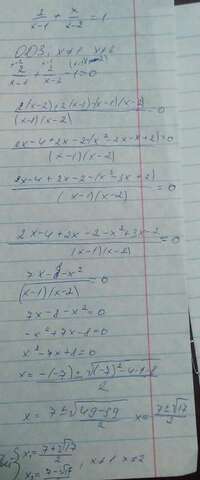 2/(x-1) + x/(x-2) = 1
ОДЗ, x≠1 x≠2
2/(x-1) + 2/(x-2) - 1 = 0
2(x-2)+2(x-1)-(x-1)(x-2) / (x-1)(x-2) = 0
2x-4+2x-2-(x²-2x-x+2) / (x-1)(x-2) = 0
2x-4+2x-2-(x²-3x+2) / (x-1)(x-2) = 0
2x-4+2x-2-x²+3x-2 / (x-1)(x-2) = 0
7x-8-x² / (x-1)(x-2) = 0
7x-8-x²=0
-x²+7x-8=0
x²-7x+8=0
x = -(-7)±√((-7)²-4·1·8) / 2
x = 7±√(49-32) / 2 x = 7±√17 / 2
x₁ = 7+√17 / 2
x₂ = 7-√17 / 2 , x≠1 x≠2